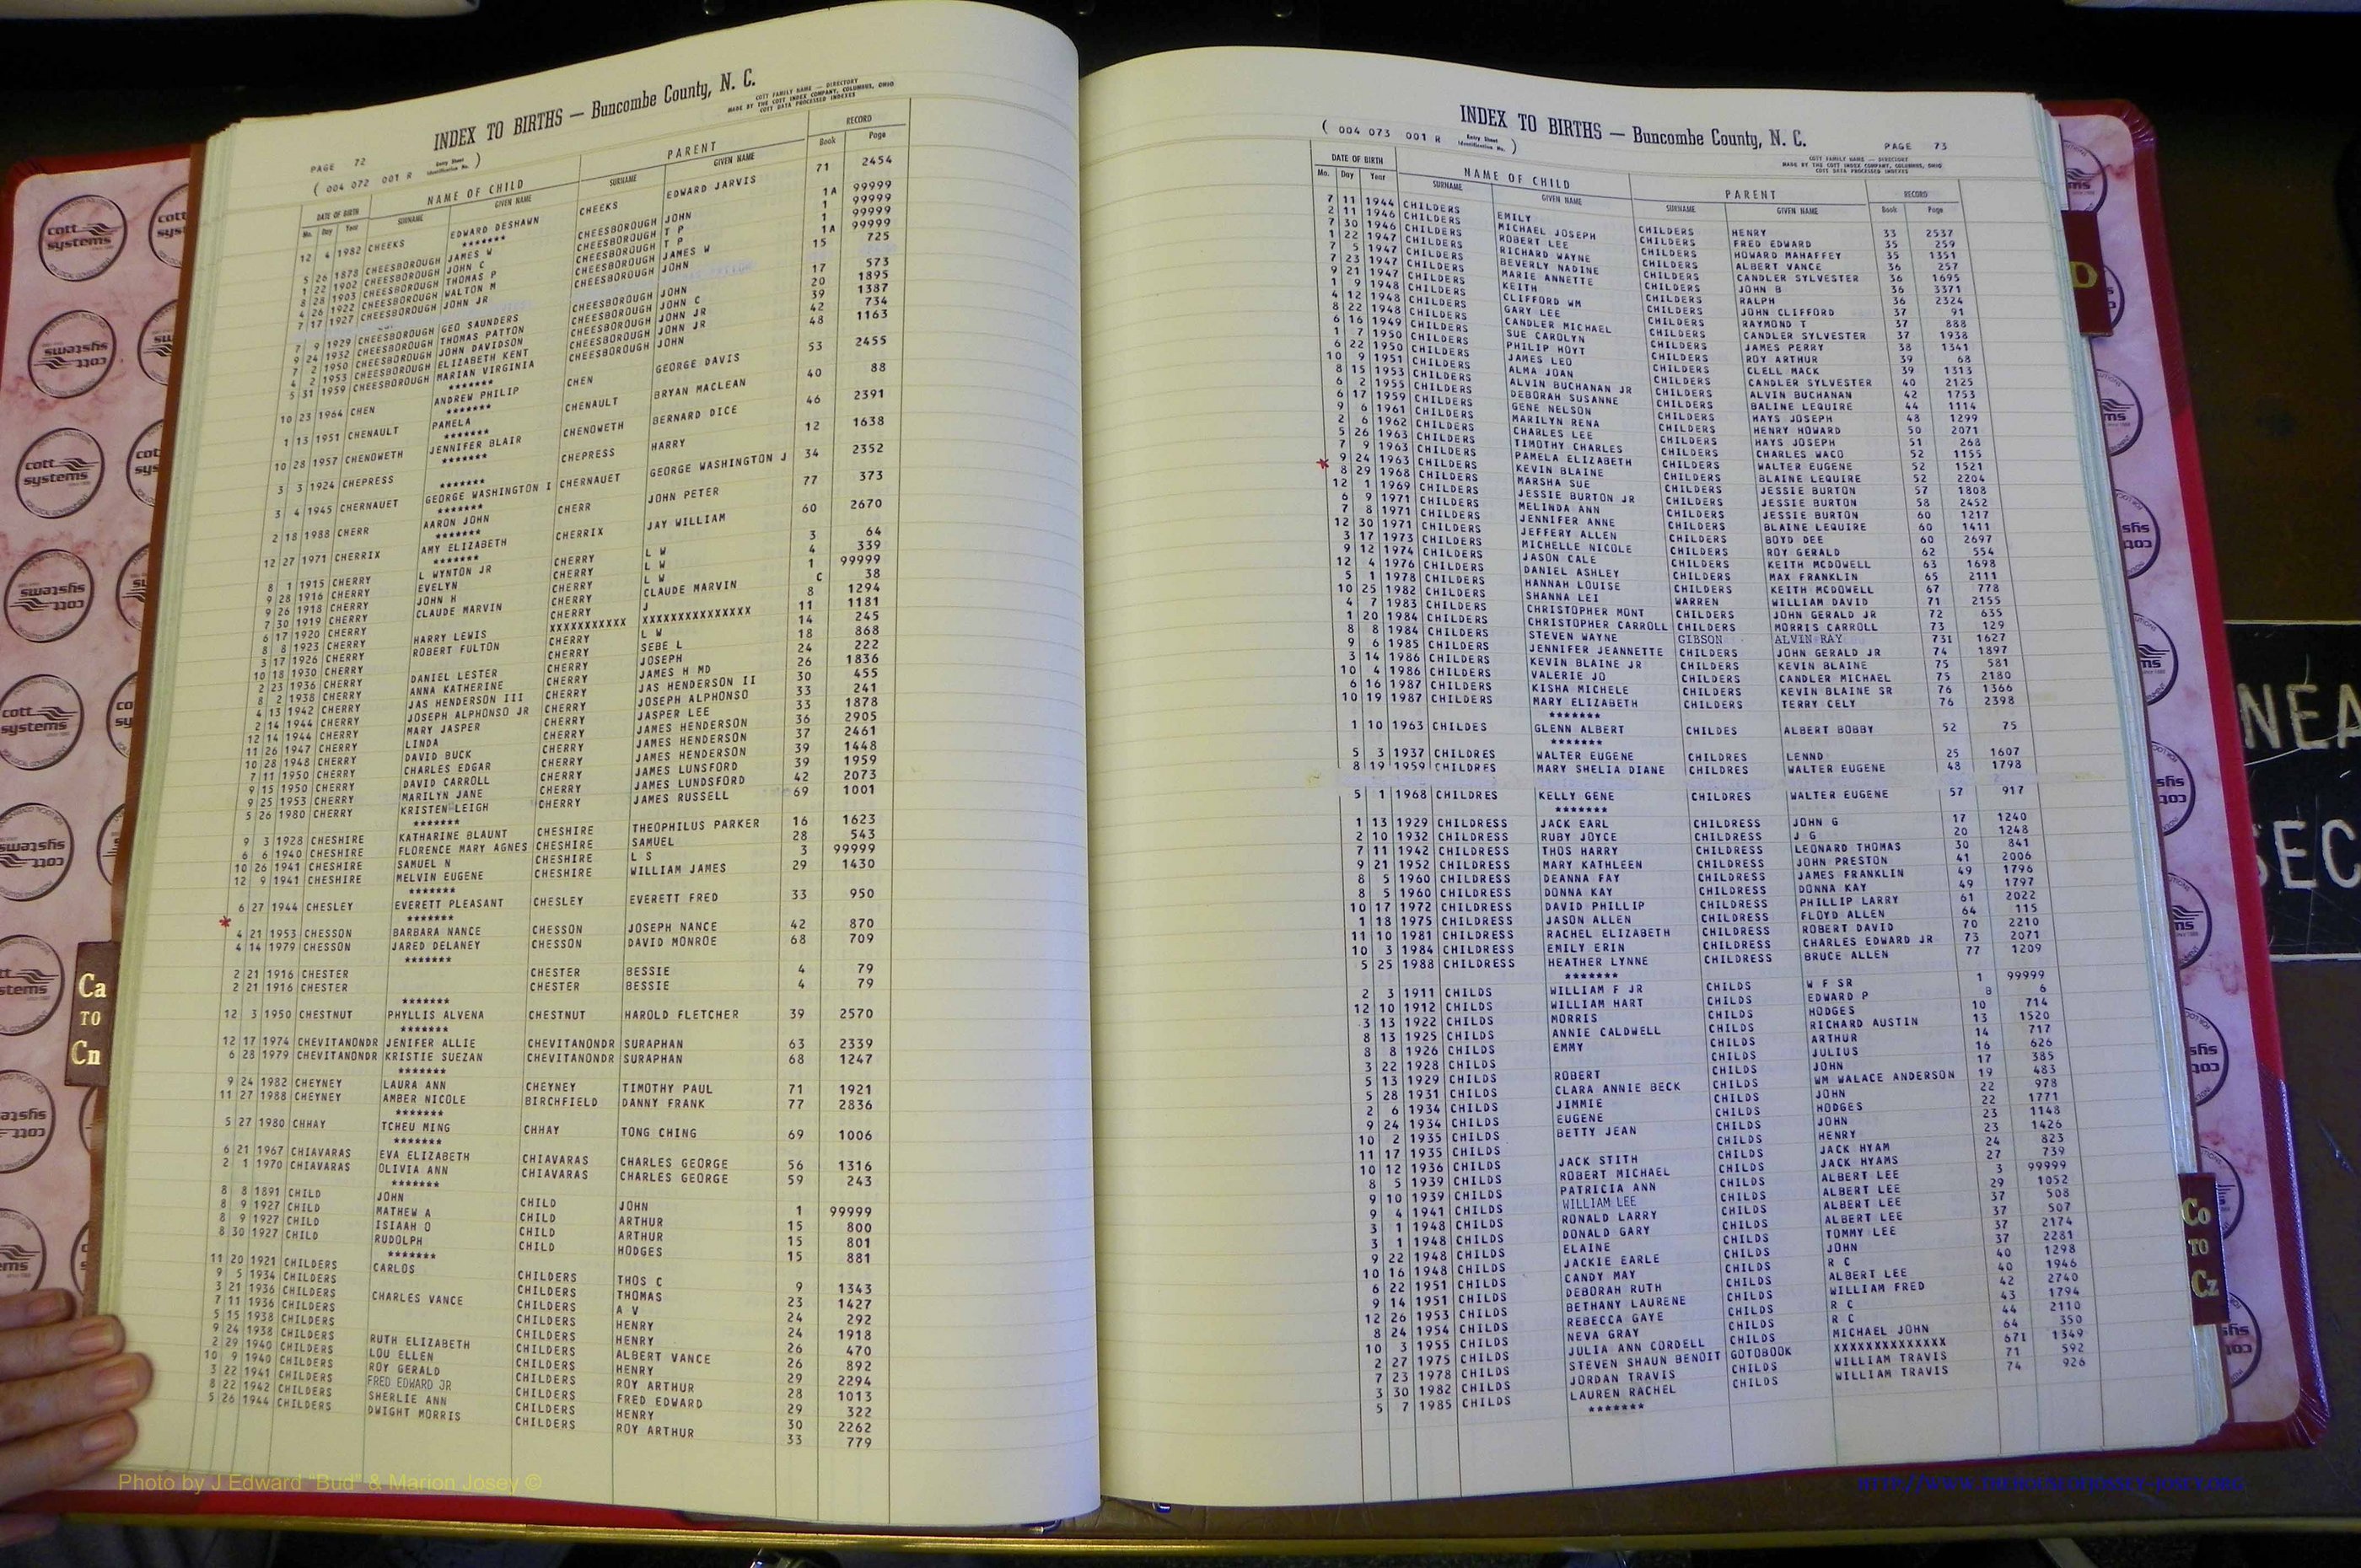 INDEX TO BIRTHS — Buncombe County, N. C.
COTT FAMILY NAME — DIRECTORY
MADE BY THE COTT INDEX COMPANY, COLUMBUS, OHIO
COTT DATA PROCESSED INDEXES
PAGE 72
( 004 072 001 R Entry Sheet Identification No. )
DATE OF BIRTH NAME OF CHILD PARENT RECORD
Mo. Day Year SURNAME GIVEN NAME SURNAME GIVEN NAME Book Page
12 4 1982 CHEEKS EDWARD DESHAWN CHEEKS EDWARD JARVIS 71 2454
*******
5 26 1878 CHEESBOROUGH JAMES W CHEESBOROUGH JOHN 1A 99999
1 22 1902 CHEESBOROUGH JOHN C CHEESBOROUGH T P 1 99999
8 28 1903 CHEESBOROUGH THOMAS P CHEESBOROUGH T P 1 99999
4 26 1922 CHEESBOROUGH WALTON M CHEESBOROUGH JAMES W 1A 99999
7 17 1927 CHEESBOROUGH JOHN JR CHEESBOROUGH JOHN 15 725
7 9 1929 CHEESBOROUGH GEO SAUNDERS CHEESBOROUGH JOHN 17 573
9 24 1932 CHEESBOROUGH THOMAS PATTON CHEESBOROUGH JOHN C 20 1895
7 2 1950 CHEESBOROUGH JOHN DAVIDSON CHEESBOROUGH JOHN JR 39 1387
4 2 1953 CHEESBOROUGH ELIZABETH KENT CHEESBOROUGH JOHN JR 42 734
5 31 1959 CHEESBOROUGH MARIAN VIRGINIA CHEESBOROUGH JOHN 48 1163
*******
10 23 1964 CHEN ANDREW PHILIP CHEN GEORGE DAVIS 53 2455
*******
1 13 1951 CHENAULT PAMELA CHENAULT BRYAN MACLEAN 40 88
*******
10 28 1957 CHENOWETH JENNIFER BLAIR CHENOWETH BERNARD DICE 46 2391
*******
3 3 1924 CHEPRESS CHEPRESS HARRY 12 1638
*******
3 4 1945 CHERNAUET GEORGE WASHINGTON I CHERNAUET GEORGE WASHINGTON J 34 2352
*******
2 18 1988 CHERR AARON JOHN CHERR JOHN PETER 77 373
*******
12 27 1971 CHERRIX AMY ELIZABETH CHERRIX JAY WILLIAM 60 2670
*******
8 1 1915 CHERRY L WYNTON JR CHERRY L W 3 64
9 28 1916 CHERRY EVELYN CHERRY L W 4 339
9 26 1918 CHERRY JOHN H CHERRY L W 1 99999
7 30 1919 CHERRY CLAUDE MARVIN CHERRY CLAUDE MARVIN C 38
6 17 1920 CHERRY CHERRY J 8 1294
8 8 1923 CHERRY HARRY LEWIS XXXXXXXXXXX XXXXXXXXXXXXXXX 11 1181
3 17 1926 CHERRY ROBERT FULTON CHERRY L W 14 245
10 18 1930 CHERRY CHERRY SEBE L 18 868
2 23 1936 CHERRY DANIEL LESTER CHERRY JOSEPH 24 222
8 2 1938 CHERRY ANNA KATHERINE CHERRY JAMES H MD 26 1836
4 13 1942 CHERRY JAS HENDERSON III CHERRY JAS HENDERSON II 30 455
2 14 1944 CHERRY JOSEPH ALPHONSO JR CHERRY JOSEPH ALPHONSO 33 241
12 14 1944 CHERRY MARY JASPER CHERRY JASPER LEE 33 1878
11 26 1947 CHERRY LINDA CHERRY JAMES HENDERSON 36 2905
10 28 1948 CHERRY DAVID BUCK CHERRY JAMES HENDERSON 37 2461
7 11 1950 CHERRY CHARLES EDGAR CHERRY JAMES HENDERSON 39 1448
9 15 1950 CHERRY DAVID CARROLL CHERRY JAMES LUNSFORD 39 1959
9 25 1953 CHERRY MARILYN JANE CHERRY JAMES LUNDSFORD 42 2073
5 26 1980 CHERRY KRISTEN LEIGH CHERRY JAMES RUSSELL 69 1001
*******
9 3 1928 CHESHIRE KATHARINE BLAUNT CHESHIRE THEOPHILUS PARKER 16 1623
6 6 1940 CHESHIRE FLORENCE MARY AGNES CHESHIRE SAMUEL 28 543
10 26 1941 CHESHIRE SAMUEL N CHESHIRE L S 3 99999
12 9 1941 CHESHIRE MELVIN EUGENE CHESHIRE WILLIAM JAMES 29 1430
*******
6 27 1944 CHESLEY EVERETT PLEASANT CHESLEY EVERETT FRED 33 950
*******
4 21 1953 CHESSON BARBARA NANCE CHESSON JOSEPH NANCE 42 870
4 14 1979 CHESSON JARED DELANEY CHESSON DAVID MONROE 68 709
*******
2 21 1916 CHESTER CHESTER BESSIE 4 79
2 21 1916 CHESTER CHESTER BESSIE 4 79
*******
12 3 1950 CHESTNUT PHYLLIS ALVENA CHESTNUT HAROLD FLETCHER 39 2570
*******
12 17 1974 CHEVITANONDR JENIFER ALLIE CHEVITANONDR SURAPHAN 63 2339
6 28 1979 CHEVITANONDR KRISTIE SUEZAN CHEVITANONDR SURAPHAN 68 1247
*******
9 24 1982 CHEYNEY LAURA ANN CHEYNEY TIMOTHY PAUL 71 1921
11 27 1988 CHEYNEY AMBER NICOLE BIRCHFIELD DANNY FRANK 77 2836
*******
5 27 1980 CHHAY TCHEU MING CHHAY TONG CHING 69 1006
*******
6 21 1967 CHIAVARAS EVA ELIZABETH CHIAVARAS CHARLES GEORGE 56 1316
2 1 1970 CHIAVARAS OLIVIA ANN CHIAVARAS CHARLES GEORGE 59 243
*******
8 8 1891 CHILD JOHN CHILD JOHN 1 99999
8 9 1927 CHILD MATHEW A CHILD ARTHUR 15 800
8 9 1927 CHILD ISIAAH O CHILD ARTHUR 15 801
8 30 1927 CHILD RUDOLPH CHILD HODGES 15 881
*******
11 20 1921 CHILDERS CARLOS CHILDERS THOS C 9 1343
9 5 1934 CHILDERS CHILDERS THOMAS 23 1427
3 21 1936 CHILDERS CHARLES VANCE CHILDERS A V 24 292
7 11 1936 CHILDERS CHILDERS HENRY 24 1918
5 15 1938 CHILDERS CHILDERS HENRY 26 470
9 24 1938 CHILDERS RUTH ELIZABETH CHILDERS ALBERT VANCE 26 892
2 29 1940 CHILDERS LOU ELLEN CHILDERS HENRY 29 2294
10 9 1940 CHILDERS ROY GERALD CHILDERS ROY ARTHUR 28 1013
3 22 1941 CHILDERS FRED EDWARD JR CHILDERS FRED EDWARD 29 322
8 22 1942 CHILDERS SHERLIE ANN CHILDERS HENRY 30 2262
5 26 1944 CHILDERS DWIGHT MORRIS CHILDERS ROY ARTHUR 33 779
INDEX TO BIRTHS — Buncombe County, N. C.
( 004 073 001 R Entry Sheet Identification No. )
PAGE 73
COTT FAMILY NAME — DIRECTORY
MADE BY THE COTT INDEX COMPANY, COLUMBUS, OHIO
COTT DATA PROCESSED INDEXES
DATE OF BIRTH NAME OF CHILD PARENT RECORD
Mo. Day Year SURNAME GIVEN NAME SURNAME GIVEN NAME Book Page
7 11 1944 CHILDERS EMILY CHILDERS HENRY 33 2537
2 11 1946 CHILDERS MICHAEL JOSEPH CHILDERS FRED EDWARD 35 259
7 30 1946 CHILDERS ROBERT LEE CHILDERS HOWARD MAHAFFEY 35 1351
1 22 1947 CHILDERS RICHARD WAYNE CHILDERS ALBERT VANCE 36 257
7 5 1947 CHILDERS BEVERLY NADINE CHILDERS CANDLER SYLVESTER 36 1695
7 23 1947 CHILDERS MARIE ANNETTE CHILDERS JOHN B 36 3371
9 21 1947 CHILDERS KEITH CHILDERS RALPH 36 2324
1 9 1948 CHILDERS CLIFFORD WM CHILDERS JOHN CLIFFORD 37 91
4 12 1948 CHILDERS GARY LEE CHILDERS RAYMOND T 37 888
8 22 1948 CHILDERS CANDLER MICHAEL CHILDERS CANDLER SYLVESTER 37 1938
6 16 1949 CHILDERS SUE CAROLYN CHILDERS JAMES PERRY 38 1341
1 7 1950 CHILDERS PHILIP HOYT CHILDERS ROY ARTHUR 39 68
6 22 1950 CHILDERS JAMES LEO CHILDERS CLELL MACK 39 1313
10 9 1951 CHILDERS ALMA JOAN CHILDERS CANDLER SYLVESTER 40 2125
8 15 1953 CHILDERS ALVIN BUCHANAN JR CHILDERS ALVIN BUCHANAN 42 1753
6 2 1955 CHILDERS DEBORAH SUSANNE CHILDERS BALINE LEQUIRE 44 1114
6 17 1959 CHILDERS GENE NELSON CHILDERS HAYS JOSEPH 48 1299
9 6 1961 CHILDERS MARILYN RENA CHILDERS HENRY HOWARD 50 2071
2 6 1962 CHILDERS CHARLES LEE CHILDERS HAYS JOSEPH 51 268
5 26 1963 CHILDERS TIMOTHY CHARLES CHILDERS CHARLES WACO 52 1155
7 9 1963 CHILDERS PAMELA ELIZABETH CHILDERS WALTER EUGENE 52 1521
9 24 1963 CHILDERS KEVIN BLAINE CHILDERS BLAINE LEQUIRE 52 2204
8 29 1968 CHILDERS MARSHA SUE CHILDERS JESSIE BURTON 57 1808
12 1 1969 CHILDERS JESSIE BURTON JR CHILDERS JESSIE BURTON 58 2452
6 9 1971 CHILDERS MELINDA ANN CHILDERS JESSIE BURTON 60 1217
7 8 1971 CHILDERS JENNIFER ANNE CHILDERS BLAINE LEQUIRE 60 1411
12 30 1971 CHILDERS JEFFERY ALLEN CHILDERS BOYD DEE 60 2697
3 17 1973 CHILDERS MICHELLE NICOLE CHILDERS ROY GERALD 62 554
9 12 1974 CHILDERS JASON CALE CHILDERS KEITH MCDOWELL 63 1698
12 4 1976 CHILDERS DANIEL ASHLEY CHILDERS MAX FRANKLIN 65 2111
5 1 1978 CHILDERS HANNAH LOUISE CHILDERS KEITH MCDOWELL 67 778
10 25 1982 CHILDERS SHANNA LEI WARREN WILLIAM DAVID 71 2155
4 7 1983 CHILDERS CHRISTOPHER MONT CHILDERS JOHN GERALD JR 72 635
1 20 1984 CHILDERS CHRISTOPHER CARROLL CHILDERS MORRIS CARROLL 73 129
8 8 1984 CHILDERS STEVEN WAYNE GIBSON ALVIN RAY 731 1627
9 6 1985 CHILDERS JENNIFER JEANNETTE CHILDERS JOHN GERALD JR 74 1897
3 14 1986 CHILDERS KEVIN BLAINE JR CHILDERS KEVIN BLAINE 75 581
10 4 1986 CHILDERS VALERIE JO CHILDERS CANDLER MICHAEL 75 2180
6 16 1987 CHILDERS KISHA MICHELE CHILDERS KEVIN BLAINE SR 76 1366
10 19 1987 CHILDERS MARY ELIZABETH CHILDERS TERRY CELY 76 2398
*******
1 10 1963 CHILDES GLENN ALBERT CHILDES ALBERT BOBBY 52 75
*******
5 3 1937 CHILDRES WALTER EUGENE CHILDRES LENND 25 1607
8 19 1959 CHILDRES MARY SHELIA DIANE CHILDRES WALTER EUGENE 48 1798
5 1 1968 CHILDRES KELLY GENE CHILDRES WALTER EUGENE 57 917
*******
1 13 1929 CHILDRESS JACK EARL CHILDRESS JOHN G 17 1240
2 10 1932 CHILDRESS RUBY JOYCE CHILDRESS J G 20 1248
7 11 1942 CHILDRESS THOS HARRY CHILDRESS LEONARD THOMAS 30 841
9 21 1952 CHILDRESS MARY KATHLEEN CHILDRESS JOHN PRESTON 41 2006
8 5 1960 CHILDRESS DEANNA FAY CHILDRESS JAMES FRANKLIN 49 1796
8 5 1960 CHILDRESS DONNA KAY CHILDRESS DONNA KAY 49 1797
10 17 1972 CHILDRESS DAVID PHILLIP CHILDRESS PHILLIP LARRY 61 2022
1 18 1975 CHILDRESS JASON ALLEN CHILDRESS FLOYD ALLEN 64 115
11 10 1981 CHILDRESS RACHEL ELIZABETH CHILDRESS ROBERT DAVID 70 2210
10 3 1984 CHILDRESS EMILY ERIN CHILDRESS CHARLES EDWARD JR 73 2071
5 25 1988 CHILDRESS HEATHER LYNNE CHILDRESS BRUCE ALLEN 77 1209
*******
2 3 1911 CHILDS WILLIAM F JR CHILDS W F SR 1 99999
12 10 1912 CHILDS WILLIAM HART CHILDS EDWARD P B 6
3 13 1922 CHILDS MORRIS CHILDS HODGES 10 714
8 13 1925 CHILDS ANNIE CALDWELL CHILDS RICHARD AUSTIN 13 1520
8 8 1926 CHILDS EMMY CHILDS ARTHUR 14 717
3 22 1928 CHILDS CHILDS JULIUS 16 626
5 13 1929 CHILDS ROBERT CHILDS JOHN 17 385
5 28 1931 CHILDS CLARA ANNIE BECK CHILDS WM WALACE ANDERSON 19 483
2 6 1934 CHILDS JIMMIE CHILDS JOHN 22 978
9 24 1934 CHILDS EUGENE CHILDS HODGES 22 1771
10 2 1935 CHILDS BETTY JEAN CHILDS JOHN 23 1148
11 17 1935 CHILDS CHILDS HENRY 23 1426
10 12 1936 CHILDS JACK STITH CHILDS JACK HYAM 24 823
8 5 1939 CHILDS ROBERT MICHAEL CHILDS JACK HYAMS 27 739
9 10 1939 CHILDS PATRICIA ANN CHILDS ALBERT LEE 3 99999
9 4 1941 CHILDS WILLIAM LEE CHILDS ALBERT LEE 29 1052
3 1 1948 CHILDS RONALD LARRY CHILDS ALBERT LEE 37 508
3 1 1948 CHILDS DONALD GARY CHILDS ALBERT LEE 37 507
9 22 1948 CHILDS ELAINE CHILDS TOMMY LEE 37 2174
10 16 1948 CHILDS JACKIE EARLE CHILDS JOHN 37 2281
6 22 1951 CHILDS CANDY MAY CHILDS R C 40 1298
9 14 1951 CHILDS DEBORAH RUTH CHILDS ALBERT LEE 40 1946
12 26 1953 CHILDS BETHANY LAURENE CHILDS WILLIAM FRED 42 2740
8 24 1954 CHILDS REBECCA GAYE CHILDS R C 43 1794
10 3 1955 CHILDS NEVA GRAY CHILDS R C 44 2110
2 27 1975 CHILDS JULIA ANN CORDELL CHILDS MICHAEL JOHN 64 350
7 23 1978 CHILDS STEVEN SHAUN BENOIT GOTOBOOK XXXXXXXXXXXXX 671 1349
3 30 1982 CHILDS JORDAN TRAVIS CHILDS WILLIAM TRAVIS 71 592
5 7 1985 CHILDS LAUREN RACHEL CHILDS WILLIAM TRAVIS 74 926
*******
Ca TO Cn
Co TO Cz
D
cott systems
NEA
SEC
Photo by J Edward "Bud" & Marion Josey ©
HTTP://WWW.THEHOUSEOFJOSSEY-JOSEY.ORG